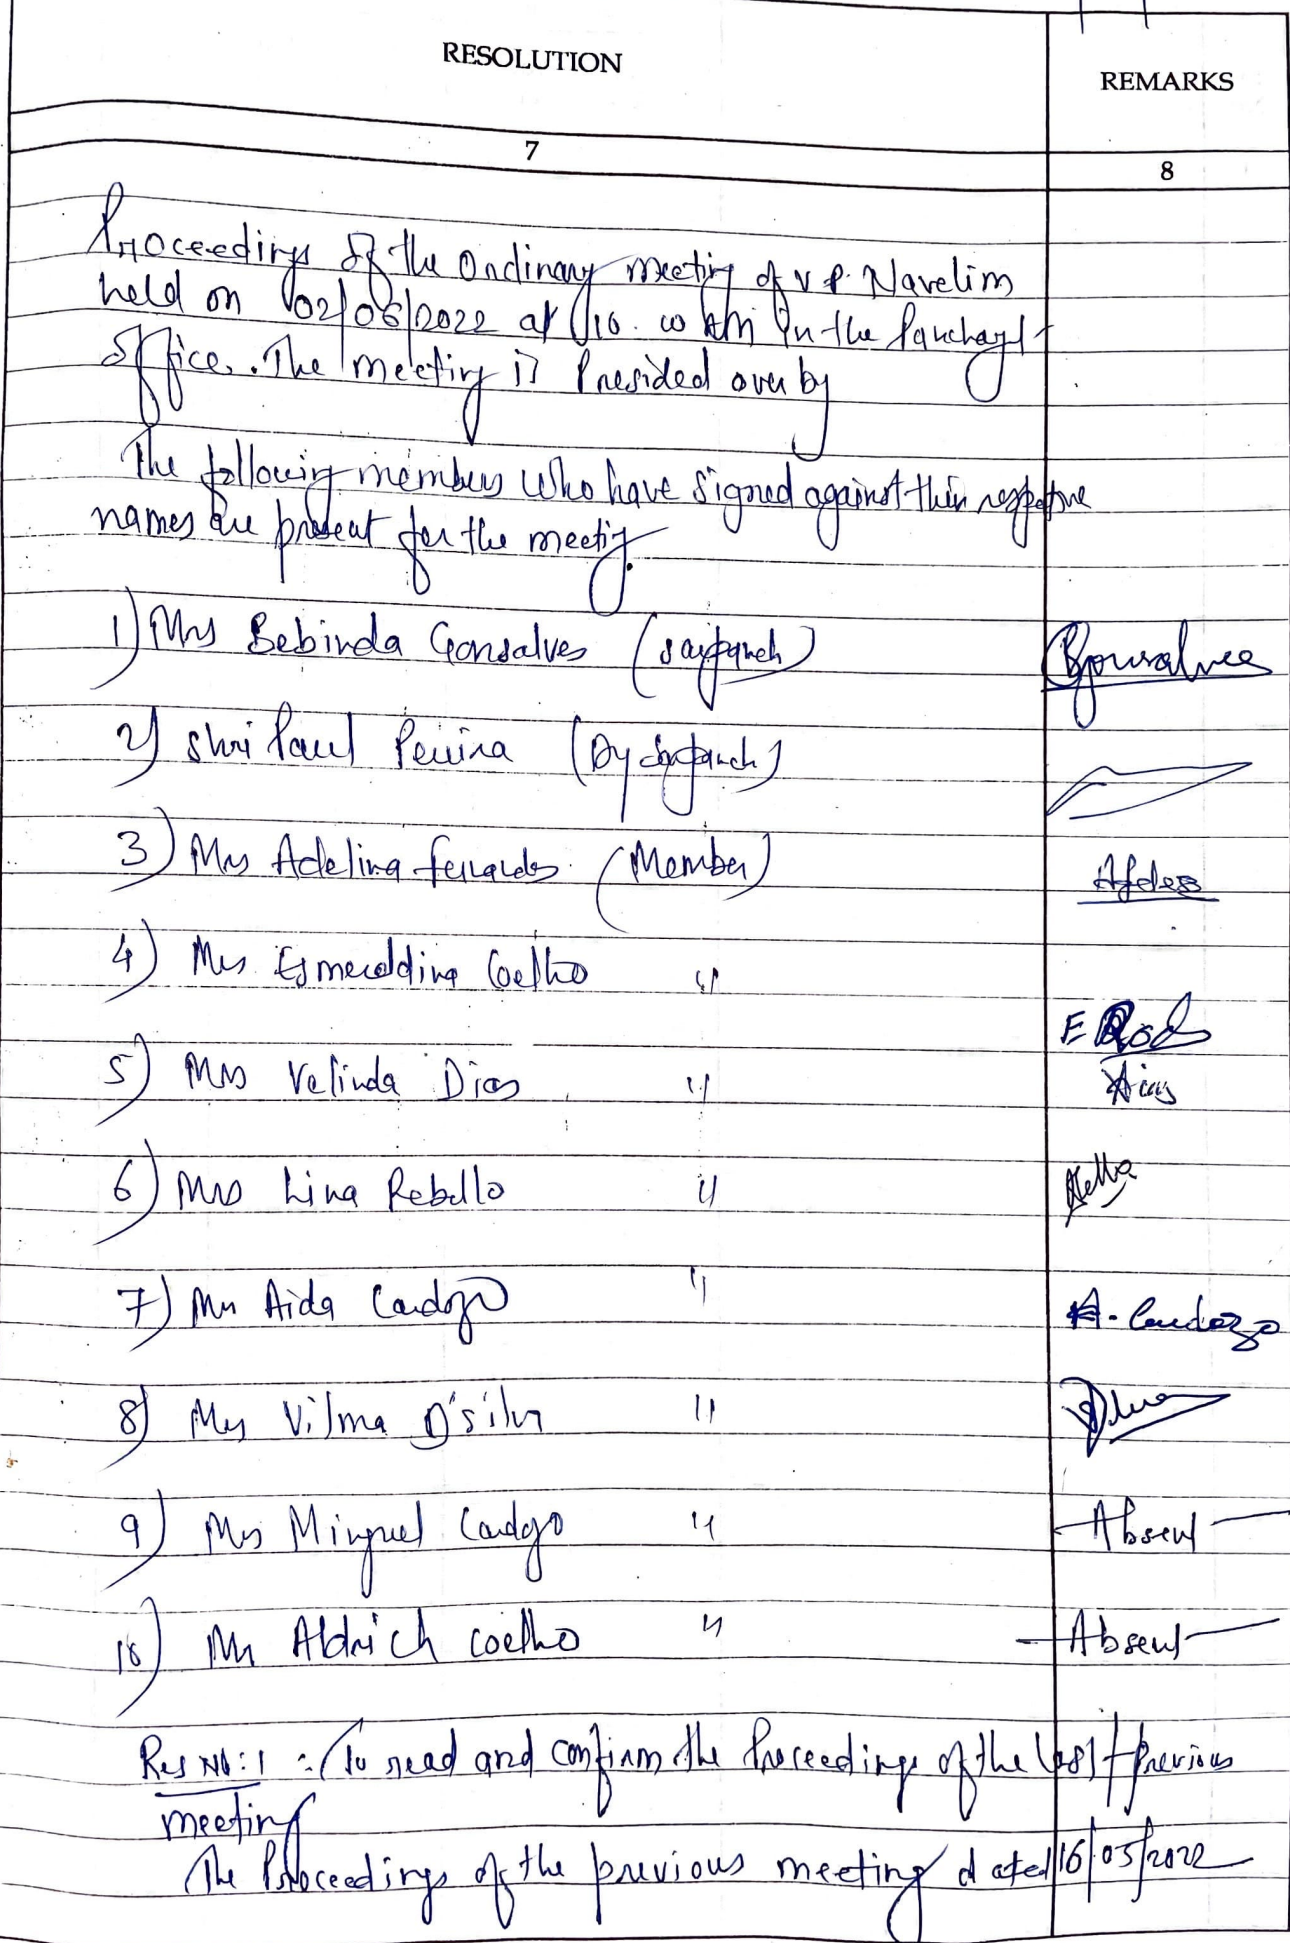 RESOLUTION
REMARKS
7
8
Proceedings of the Ordinary meeting of V.P. Navelim
held on 02/06/2022 at 10.00 AM in the Panchayt
office. The meeting is Presided over by
The following members who have signed against their respective
names are present for the meeting.
1) Mrs Bebinda Gonsalves (sarpanch) BGonsalves
2) Shri Paul Pereira (Dy sarpanch)
3) Mrs Adelina fernandes (Member) Afdes
4) Mrs Esmeraldina Coelho "
E Rod
5) Mrs Velinda Dias " Dias
6) Mrs Lina Rebello "
7) Mrs Aida Cardozo " A. Cardozo
8) Mrs Vilma D'silva "
9) Mrs Minguel Cardozo " Absent
10) Mr Aldrich Coelho " Absent
Res No: 1 :- To read and confirm the Proceedings of the last previous
meeting
The Proceedings of the previous meeting dated 16/05/2022